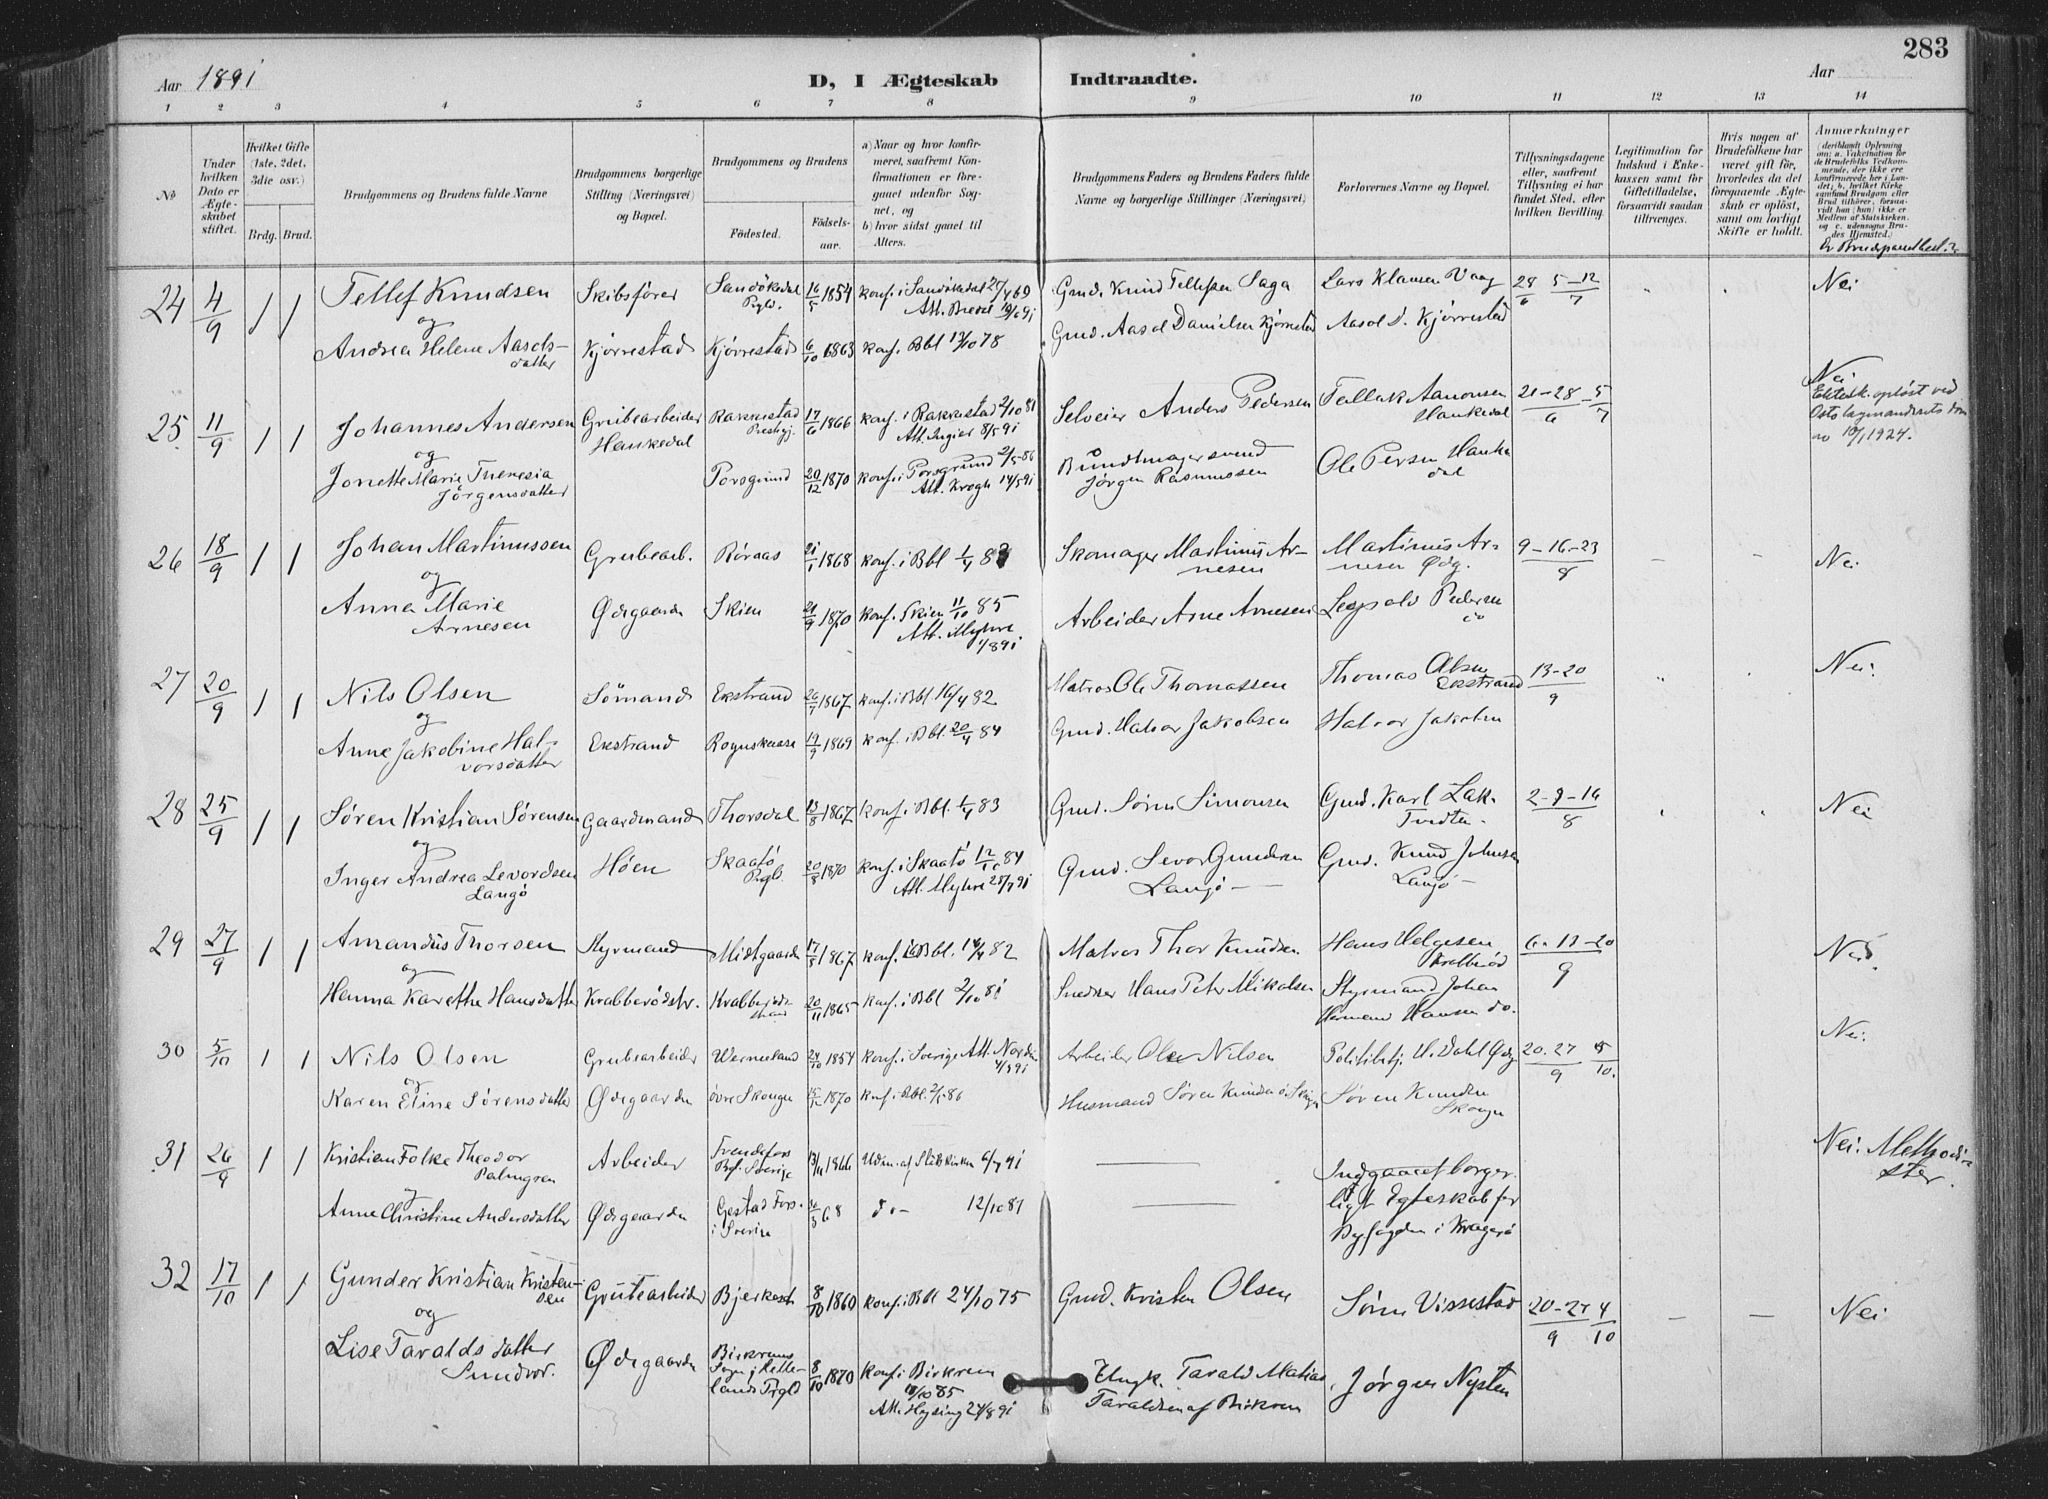 283
Aar 1891
D, I Ægteskab Indtraadte.
Aar
1 2 3 4 5 6 7 8 9 10 11 12 13 14
No
Under hvilken Dato er Ægteskabet stiftet.
Hvilket Gifte (1ste, 2det, 3die osv.)
Brdg. Brud.
Brudgommens og Brudens fulde Navne
Brudgommens borgerlige Stilling (Næringsvei) og Bopæl.
Brudgommens og Brudens
Födested.
Födselsaar.
a) Naar og hvor konfirmeret, saafremt Konfirmationen er foregaaet udenfor Sognet, og
b) hvor sidst gaaet til Alters.
Brudgommens Faders og Brudens Faders fulde Navne og borgerlige Stillinger (Næringsvei)
Forlovernes Navne og Bopæl.
Tillysningsdagene eller, saafremt Tillysning ei har fundet Sted, efter hvilken Bevilling.
Legitimation for Indskud i Enkekassen samt for Giftetilladelse, forsaavidt saadan tiltrænges.
Hvis nogen af Brudefolkene har været gift för, hvorledes da det foregaaende Ægteskab er oplöst, samt om lovligt Skifte er holdt.
Anmærkninger
(deriblandt Oplysning om: a. Vakcination for de Brudefolks Vedkommende, der ikke ere konfirmerede her i Landet; b. hvilket Kirkesamfund Brudgom eller Brud tilhörer, forsaavidt han (hun) ikke er Medlem af Statskirken, og c. udensogns Brudes Hjemsted.)
24 4/9 1 1 Tellef Knudsen Skibsförer Sandökedal Prgld. 16/5 1854 konf. i Sandökedal Att. Gmd. Knud Tellefsen Saga Lars Klausen Vaag 28/6 5-12/7 Nei
og
Andrea Helene Aasolsdatter Kjörrestad Kjörrestad 6/10 1863 konf. Bbl 13/10 78 Gmd. Aasol Danielsen Kjörrestad Aasol D. Kjörrestad
25 11/9 1 1 Johannes Andersen Grubearbeider Hankedal Rakkestad Prestgj. 17/6 1866 konf. i Rakkestad 2/10 81 Att. Ingier 8/5 91 Selveier Anders Pedersen Tellak Aanonsen Hankedal 21-28/6 - 5/7 Nei
Ektesk. oplöst ved
Oslo lagmandsrets dom
av 10/1 1924.
og
Jonette Marie Theresia Jörgensdatter Porsgrund 20/12 1870 konf. i Porsgrund 2/5 86 Att. Krogh 14/5 91 Bundtmagersvend Jörgen Rasmussen Ole Persen Hankedal
26 18/9 1 1 Johan Martinussen Grubearb. Röraas 21/1 1868 konf. i Bbl Skomager Martinus Arnesen Martinus Arnesen Ødg. 9-16-23/8 - - Nei
og
Anna Marie Arnesen Ødegaarden Skien 21/9 1870 konf. Skien 11/10 85 Att. i Myhre 1/8 91 Arbeider Arne Arnesen Leopold Pedersen do
27 20/9 1 1 Nils Olsen Sömand Ekstrand 1867 konf. i Bbl 16/4 82 Matros Ole Thomassen Thomas Olsen Ekstrand 13-20/9 Nei.
og
Anne Jakobine Halvorsdatter Ekstrand 19/9 1869 konf. i Bbl. 20/4 84 Gmd. Halvor Jakobsen Halvor Jakobsen
28 25/9 1 1 Sören Kristian Sörensen Gaardmand Thorsdal 13/8 1867 konf. i Bbl. 1/4 83 Gmd. Sören Simonsen Gmd. Karl Lak. Tvedten 2-9-16/8 Nei
og
Inger Andrea Levordsen Langö Höen Skaatö Prgl. 20/8 1870 konf. i Skaatö 12/10 84 Att. Myhre 28/7 91 Gmd. Levor Gundersen Langö - Gmd. Knud Johnsen Langö -
29 27/9 1 1 Amandus Thorsen Styrmand Midtgaarden 17/8 1867 konf. i Bbl. 16/4 82 Matros Thor Knudsen Hans Helgesen 6-13-20/9 Nei.
og
Hanna Karethe Hansdatter Krabberödstr. Krabberödstrand 20/11 1865 konf. i Bbl 2/10 81 Snedker Hans Peter Mikalsen Styrmand Johan Herman Hansen do.
30 5/10 1 1 Nils Olsen Grubearbeider Wermeland 24/10 1854 konf. i Sverige Att. Arbeider Ole Nilsen Politibtj. H. Dahl Ødg 20-27/9 /10. Nei.
og
Karen Eline Sörensdatter Ødegaarden övre Skougen 1870 konf. i Bbl. 2/5 86 Husmand Sören Knudsen ö. Skougen Sören Knudsen Skougen
31 26/9 1 1 Kristian Folke Theodor Palmgren Arbeider Sverige 13/11 1866 Udm. af Statskirken 6/7 91 - Indgaaet borgerligt Egteskab for Byfogden i Kragerö Nei: Methodister.
og
Anne Christine Andersdatter Ødegaarden Gestad Fors. i Sverige 68 do - 12/10 81 -
32 17/10 1 1 Gunder Kristian Kristensen Grubearbeider 8/10 1860 konf. i Bbl 24/10 75 Gmd. Kristen Olsen Sören Vissestad 20-27/9 4/10 - - Nei
og
Lise Taraldsdatter Sundvor. Ødegaarden Birkrems Sogn i Hellelands Prgld 8/10 1870 Konf. i Birkrem 18/10 85 Att. Heysing 24/8 91 Ungk. Tarald Matias Taraldsen af Birkrem Jörgen Nysten